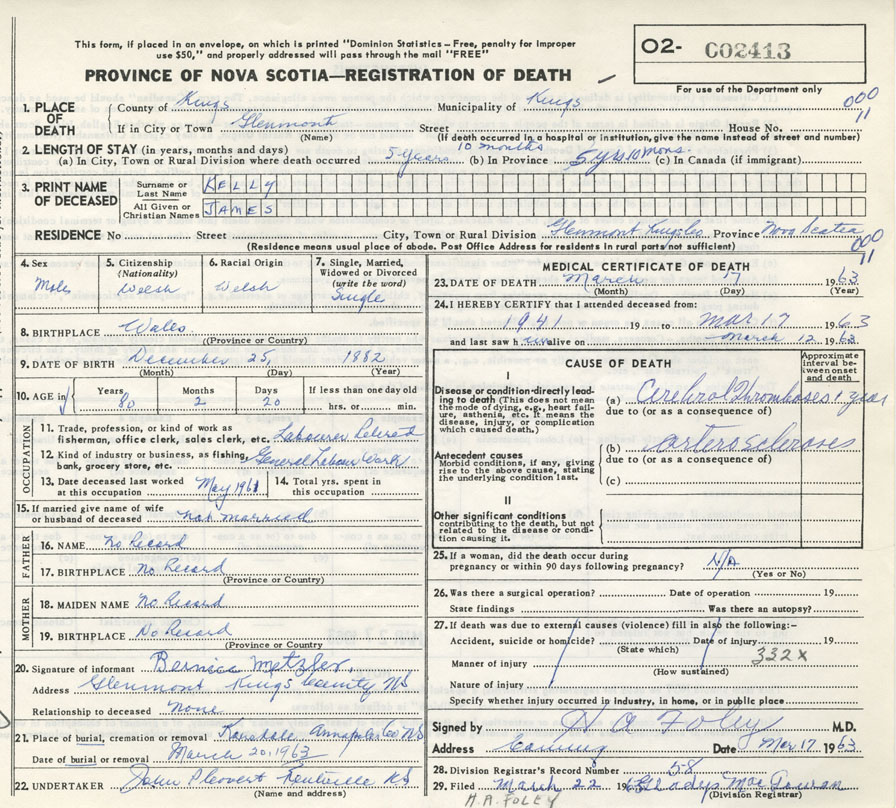 This form, if placed in an envelope, on which is printed "Dominion Statistics – Free, penalty for improper
use $50," and properly addressed will pass through the mail "FREE"
O2- C02413
PROVINCE OF NOVA SCOTIA—REGISTRATION OF DEATH
For use of the Department only
000
11
1. PLACE OF DEATH
County of Kings Municipality of Kings
If in City or Town Glenmont Street House No.
(Name) (If death occurred in a hospital or institution, give the name instead of street and number)
2. LENGTH OF STAY (in years, months and days)
(a) In City, Town or Rural Division where death occurred 5 years 10 months (b) In Province 5 yrs 10 mons. (c) In Canada (if immigrant)
3. PRINT NAME OF DECEASED
Surname or Last Name KELLY
All Given or Christian Names JAMES
RESIDENCE No Street City, Town or Rural Division Glenmont Province Nova Scotia
(Residence means usual place of abode. Post Office Address for residents in rural parts not sufficient)
000
11
4. Sex Male
5. Citizenship (Nationality) Welsh
6. Racial Origin Welsh
7. Single, Married, Widowed or Divorced (write the word) Single
8. BIRTHPLACE Wales
(Province or Country)
9. DATE OF BIRTH December 25, 1882
(Month) (Day) (Year)
10. AGE in Years 80 Months 2 Days 20 If less than one day old hrs. or min.
OCCUPATION
11. Trade, profession, or kind of work as
fisherman, office clerk, sales clerk, etc. Labourer Retired
12. Kind of industry or business, as fishing,
bank, grocery store, etc. General Labour Work
13. Date deceased last worked
at this occupation May 1961
14. Total yrs. spent in
this occupation
15. If married give name of wife
or husband of deceased Not married
FATHER
16. NAME No Record
17. BIRTHPLACE No Record
(Province or Country)
MOTHER
18. MAIDEN NAME No Record
19. BIRTHPLACE No Record
(Province or Country)
20. Signature of informant Bernice Metzler.
Address Glenmont Kings County NS
Relationship to deceased None
21. Place of burial, cremation or removal Annapolis Co NS
Date of burial or removal March 20, 1963
22. UNDERTAKER John Kentville NS
(Name and address)
MEDICAL CERTIFICATE OF DEATH
23. DATE OF DEATH March 17 1963
(Month) (Day) (Year)
24. I HEREBY CERTIFY that I attended deceased from:
1941 19 to Mar 17 1963
and last saw him alive on March 12 1963
CAUSE OF DEATH
Approximate interval between onset and death
I
Disease or condition directly leading to death (This does not mean the mode of dying, e.g., heart failure, asthenia, etc. It means the disease, injury, or complication which caused death.)
(a) Cerebral Thromboses 1 year
due to (or as a consequence of)
Antecedent causes
Morbid conditions, if any, giving rise to the above cause, stating the underlying condition last.
(b) arterosclerosis
due to (or as a consequence of)
(c)
II
Other significant conditions
contributing to the death, but not related to the disease or condition causing it.
25. If a woman, did the death occur during
pregnancy or within 90 days following pregnancy? N/A
(Yes or No)
26. Was there a surgical operation? Date of operation 19
State findings Was there an autopsy?
27. If death was due to external causes (violence) fill in also the following:-
Accident, suicide or homicide? Date of injury 19
(State which)
Manner of injury 332X
(How sustained)
Nature of injury
Specify whether injury occurred in industry, in home, or in public place
Signed by H A Foley M.D.
Address Canning Date Mar 17 1963
28. Division Registrar's Record Number 58
29. Filed March 22 1963 Gladys
(Division Registrar)
H.A. FOLEY